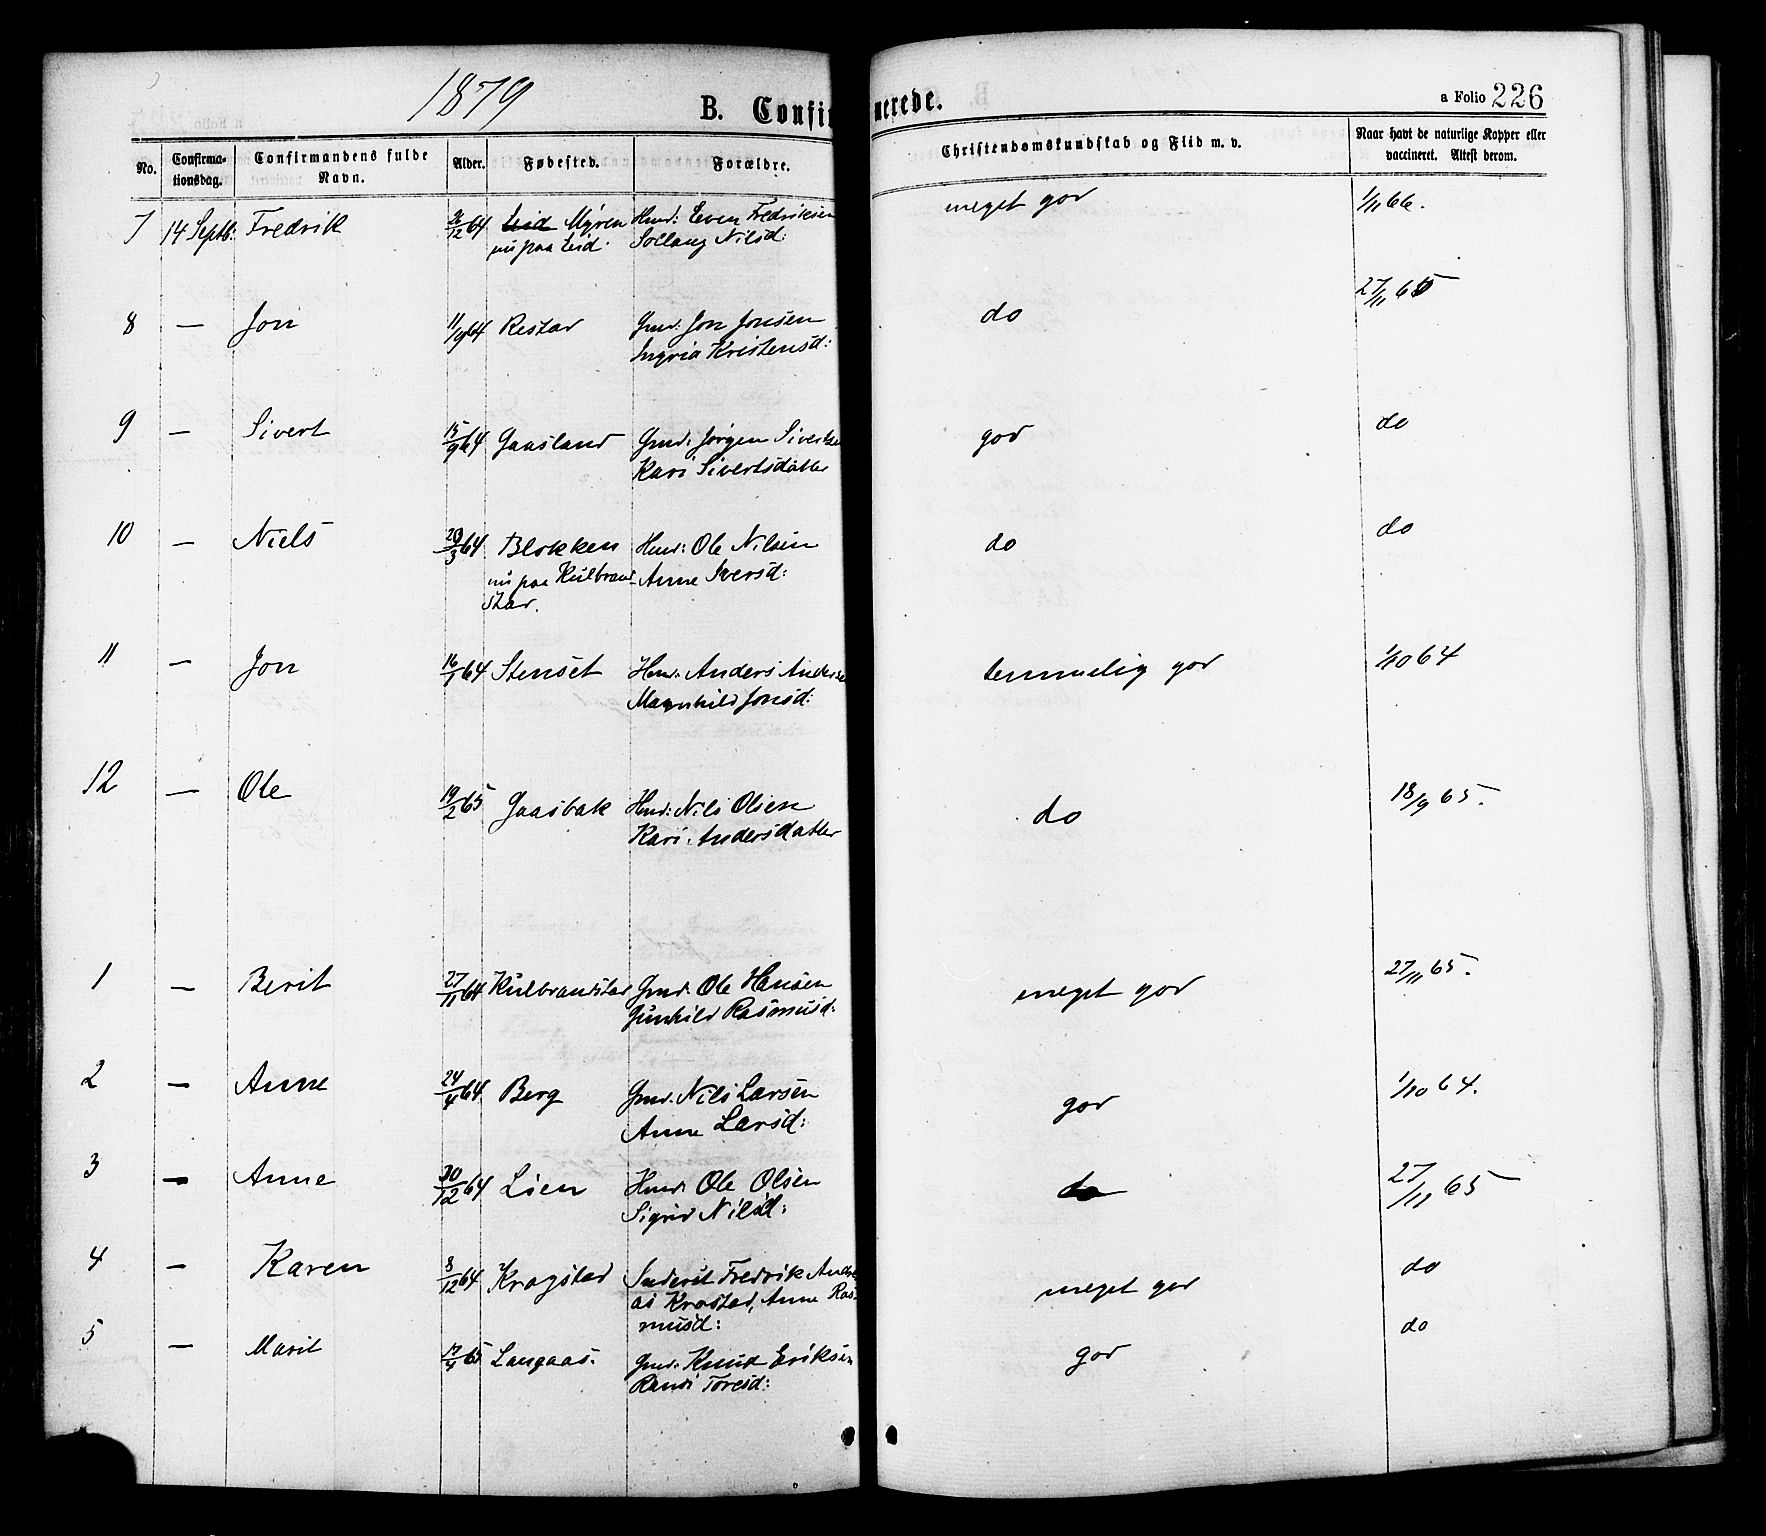 1879
B. Confirmerede.
a Folio 226
No. Confirmationsdag. Confirmandens fulde Navn. Alder. Fødested. Forældre. Christendomskundskab og Flid m. v. Naar havt de naturlige Kopper eller vaccineret. Attest derom.
7 14 Septb: Fredrik 26/12 64 Myren Hmd: Even Fredriksen meget god 1/11 66.
nu paa Lid. Sollaug Nilsd:
8 — Jon 11/9 64 Restad Gmd: Jon Jonsen do 27/11 65
Ingria Kristensd:
9 — Sivert 15/9 64 Gaasland Gmd: Jørgen Sivertsen god do
Kari Sivertsdatter
10 — Niels 20/3 64 Blokken Hmd: Ole Nilsen do do
nu paa Kulbrand- Anne Iversd:
stad.
11 — Jon 16/1 64 Stenset Hmd: Anders Anders temmelig god 1/10 64
Magnhild Jonsd:
12 — Ole 19/2 65 Gaasbak Hmd: Nils Olsen do 18/9 65.
Kari Andersdatter
1 — Berit 27/11 64 Kulbrandstad Gmd: Ole Hansen meget god 27/11 65.
Gunhild Rasmusd:
2 — Anne 24/4 64 Berg Gmd: Nils Larsen god 1/10 64.
Anne Larsd:
3 — Anne 30/12 64 Lien Hmd: Ole Olsen do 27/11 65
Sigrid Nilsd:
4 — Karen 8/12 64 Kragstad Inderst Fredrik Andre meget god do
as Krostad, Anne Ras-
musd:
5 — Marit 17/4 65 Langaas. Gmd: Knud Eriksen god do
Randi Toresd: